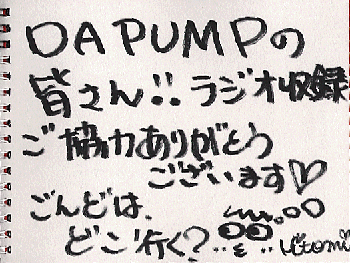 DA PUMPの
皆さん!! ラジオ収録
ご協力ありがとう
ございます♡
こんどは、
どこ行く?